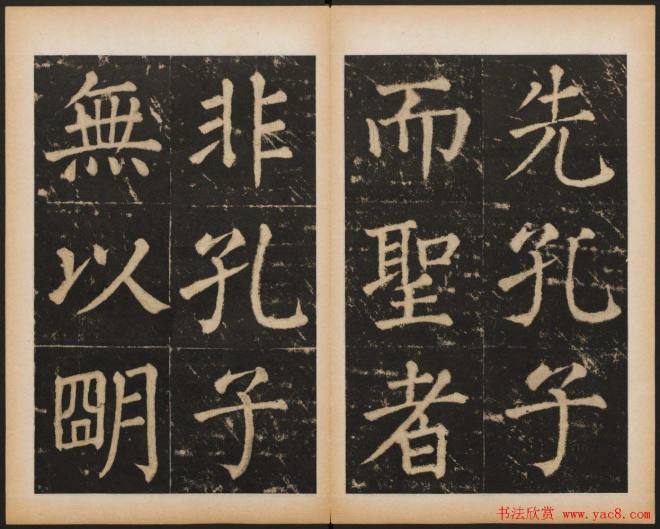 先孔子
而聖者
非孔子
無以朙
书法欣赏 www.yac8.com